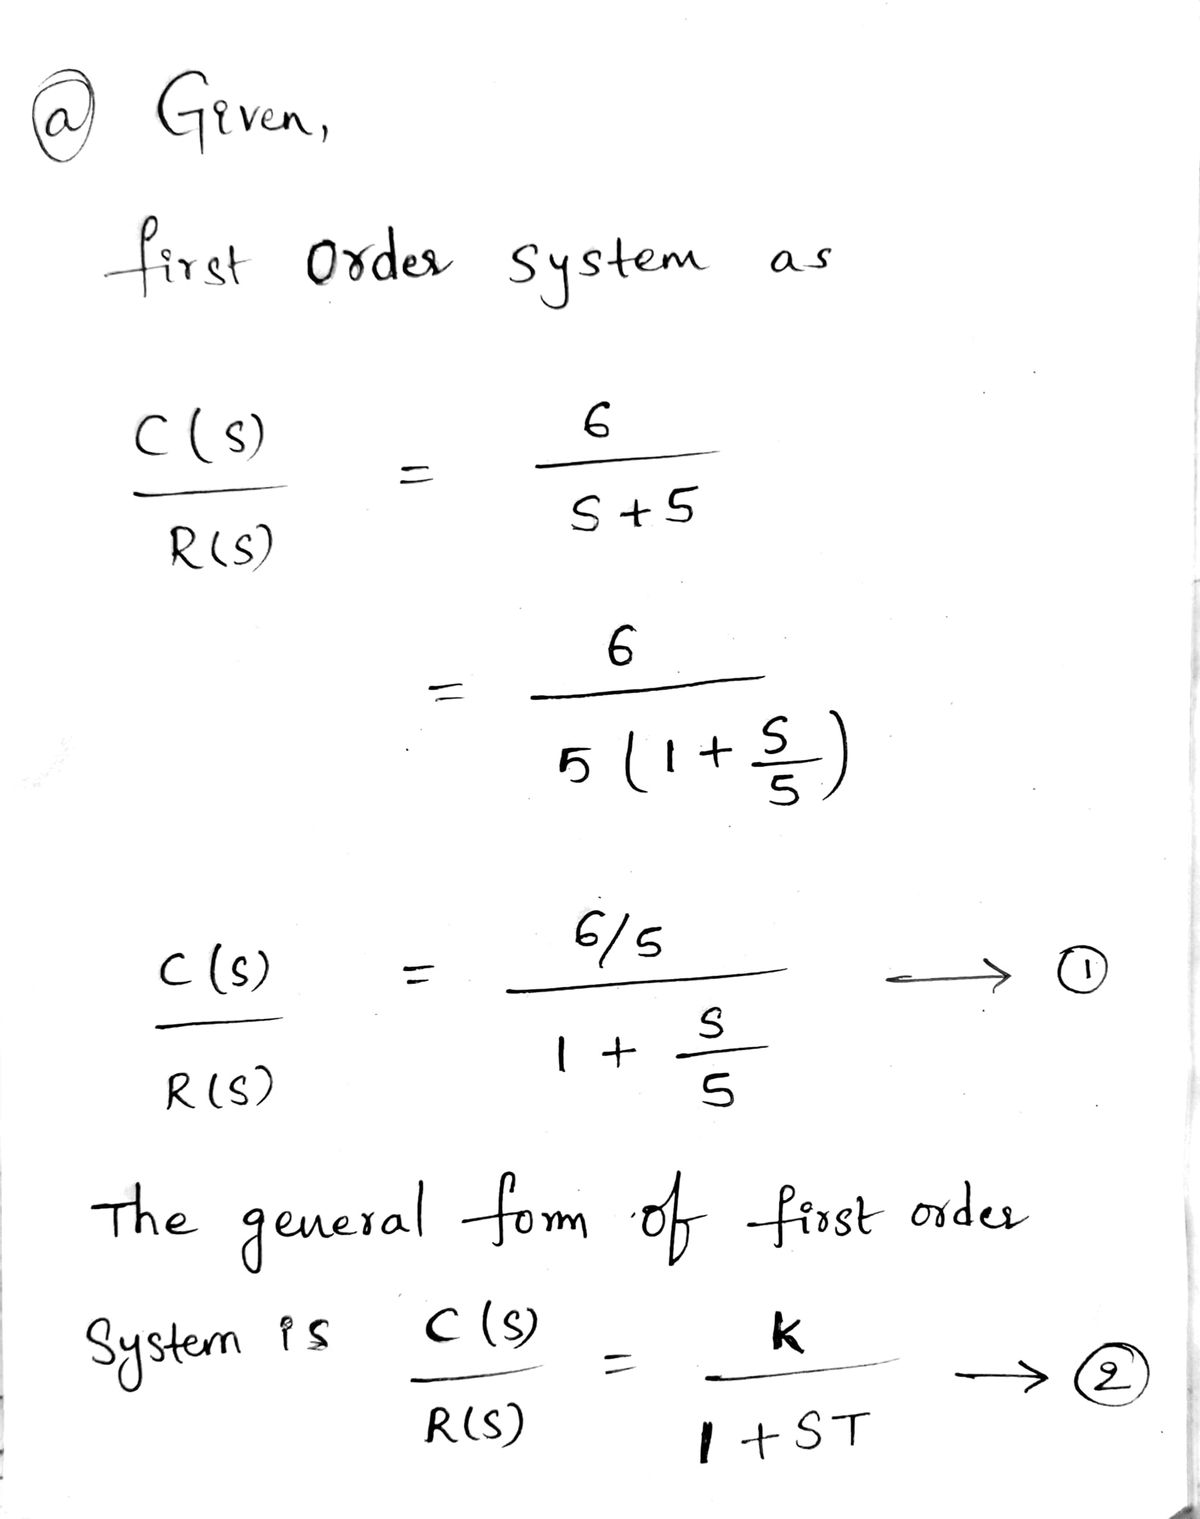 (a) Given,
first order system as
C(s)/R(s) = 6/(s+5)
= 6/(5(1+s/5))
C(s)/R(s) = (6/5)/(1+s/5) → ①
The general form of first order
System is C(s)/R(s) = k/(1+ST) → ②